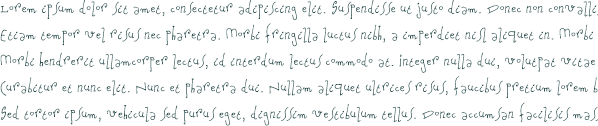 Lorem ipsum dolor sit amet, consectetur adipiscing elit. Suspendisse ut justo diam. Donec non convalli
Etiam tempor vel risus nec pharetra. Morbi fringilla luctus nibh, a imperdiet nisl aliquet in. Morbi
Morbi hendrerit ullamcorper lectus, id interdum lectus commodo at. Integer nulla dui, volutpat vitae
Curabitur et nunc elit. Nunc et pharetra dui. Nullam aliquet ultrices risus, faucibus pretium lorem b
Sed tortor ipsum, vehicula sed purus eget, dignissim vestibulum tellus. Donec accumsan facilisis mas